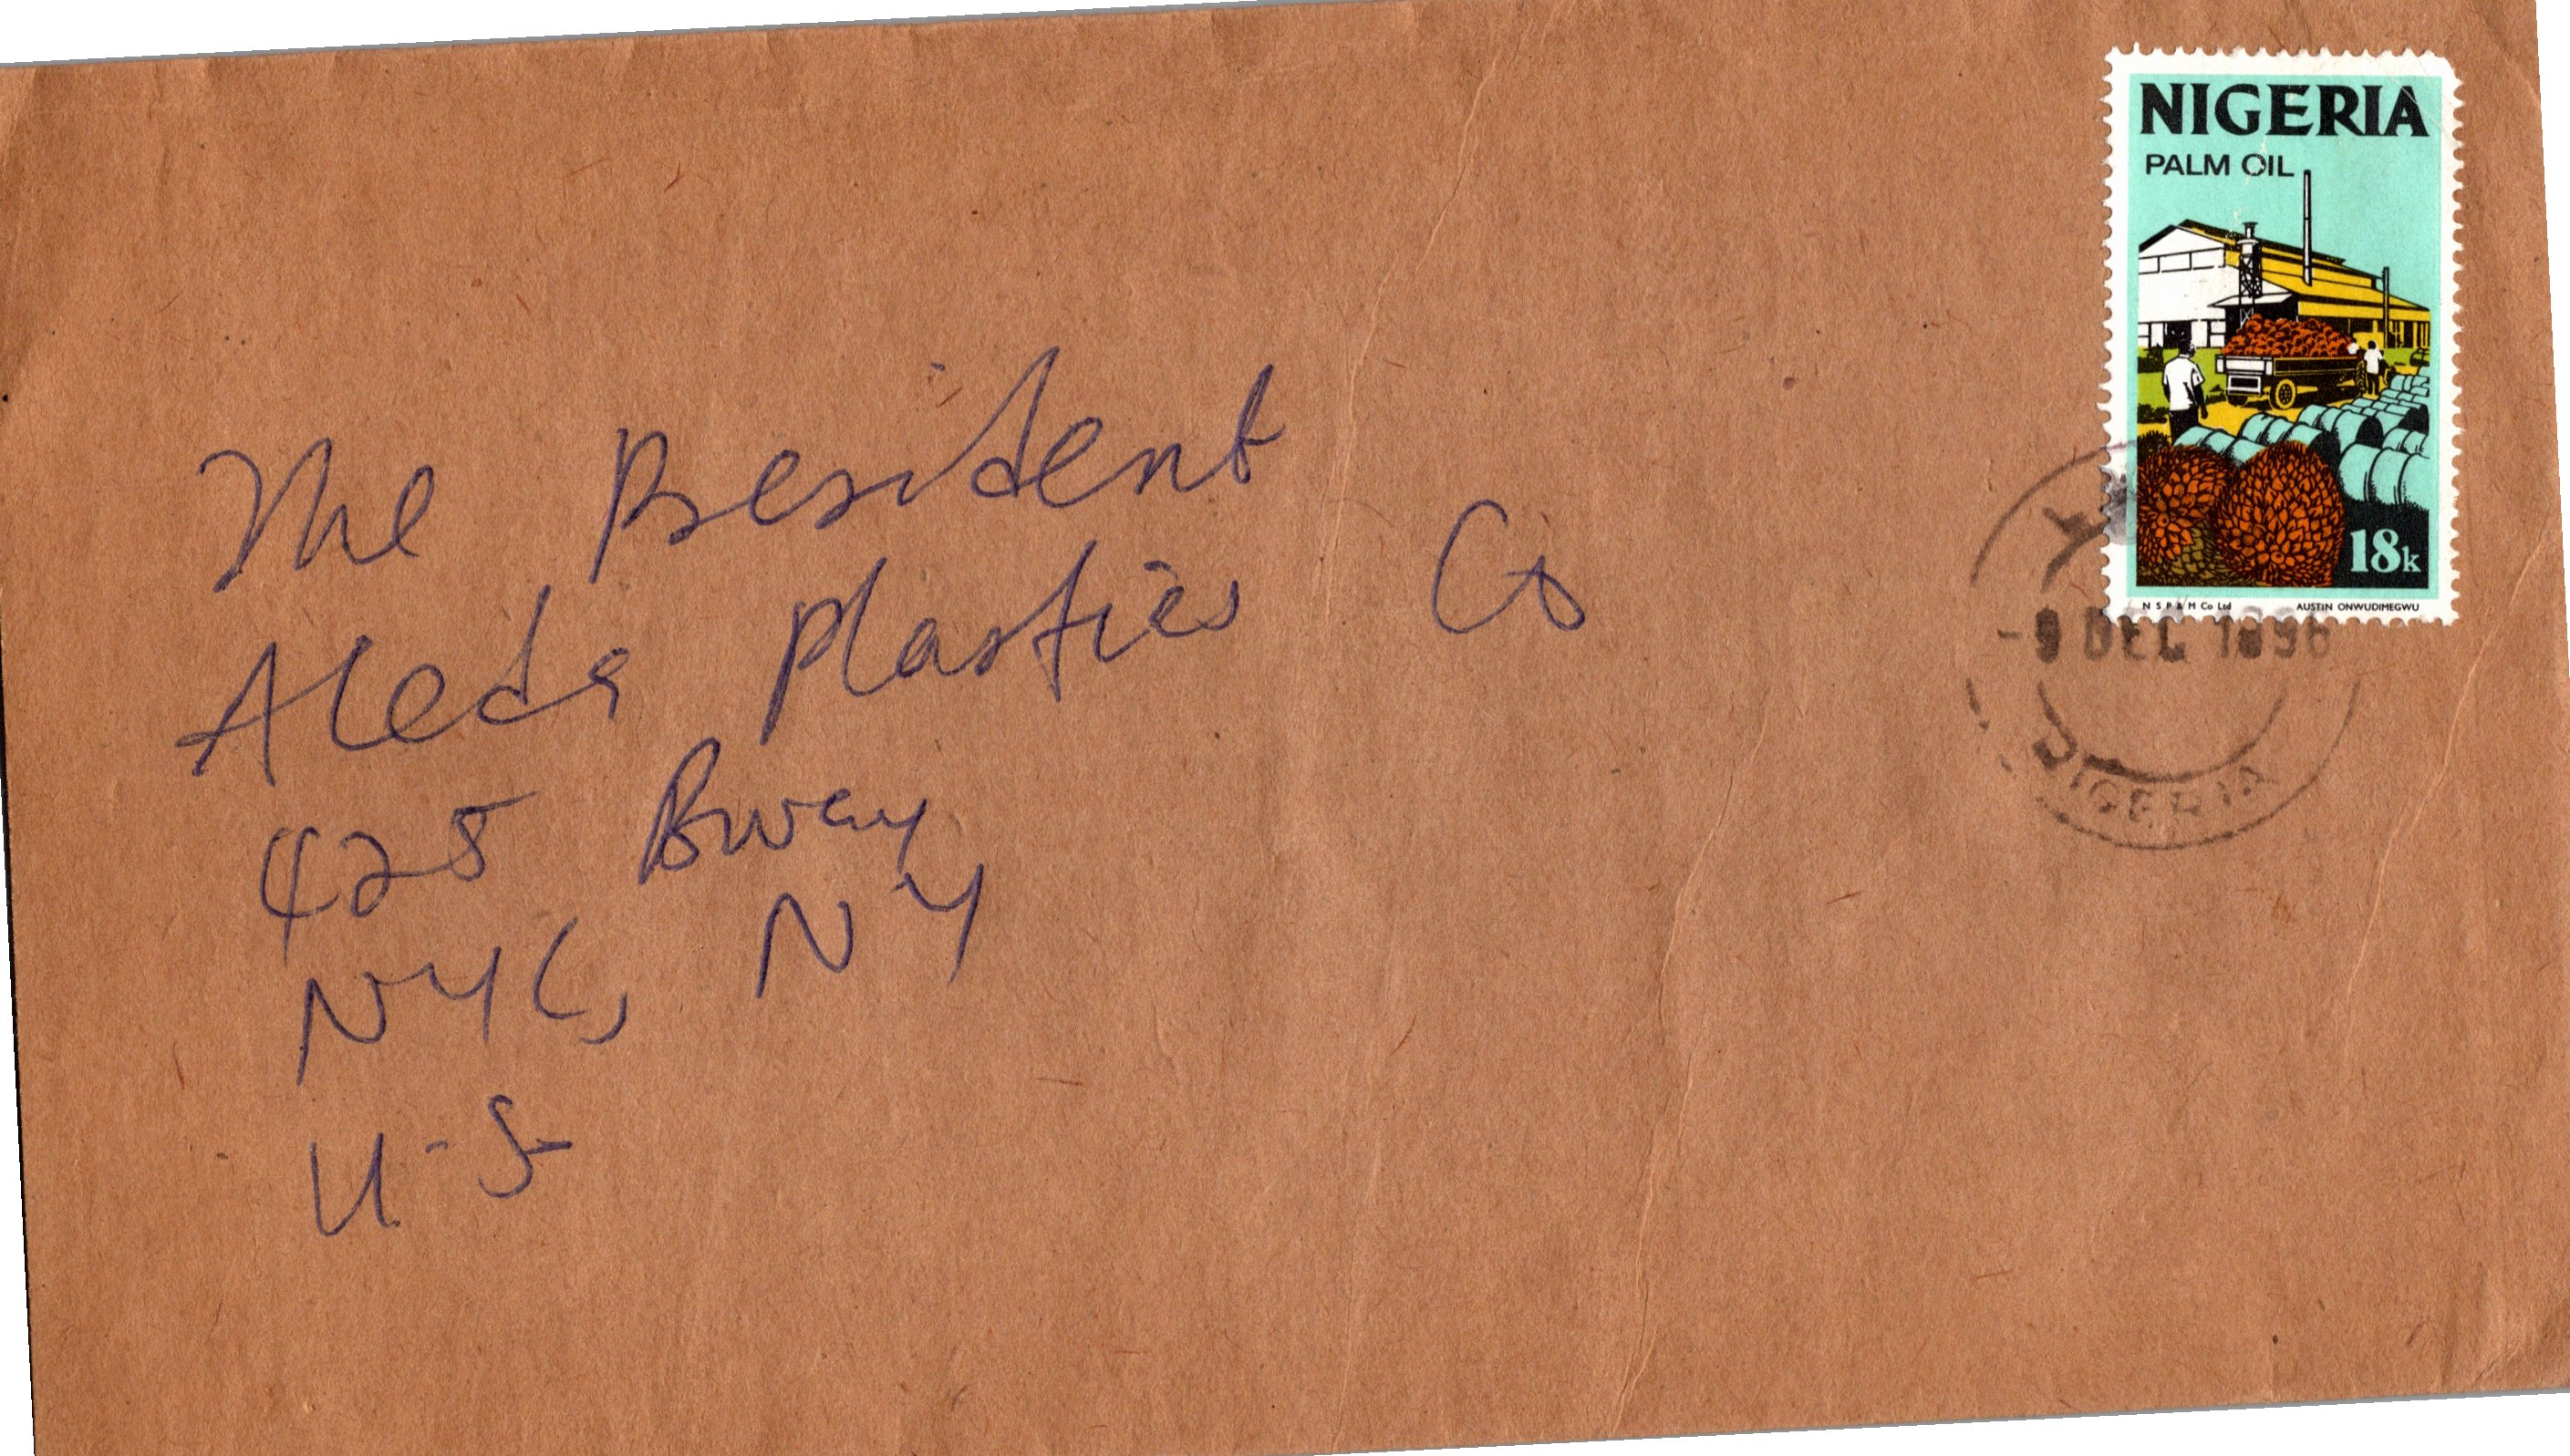 NIGERIA
PALM OIL
18k
N S P & M Co Ltd AUSTIN ONWUDIMEGWU
-9 DEC
NIGERIA
The President
Aleda Plastics Co
425 Bway
NYC, NY
U-S